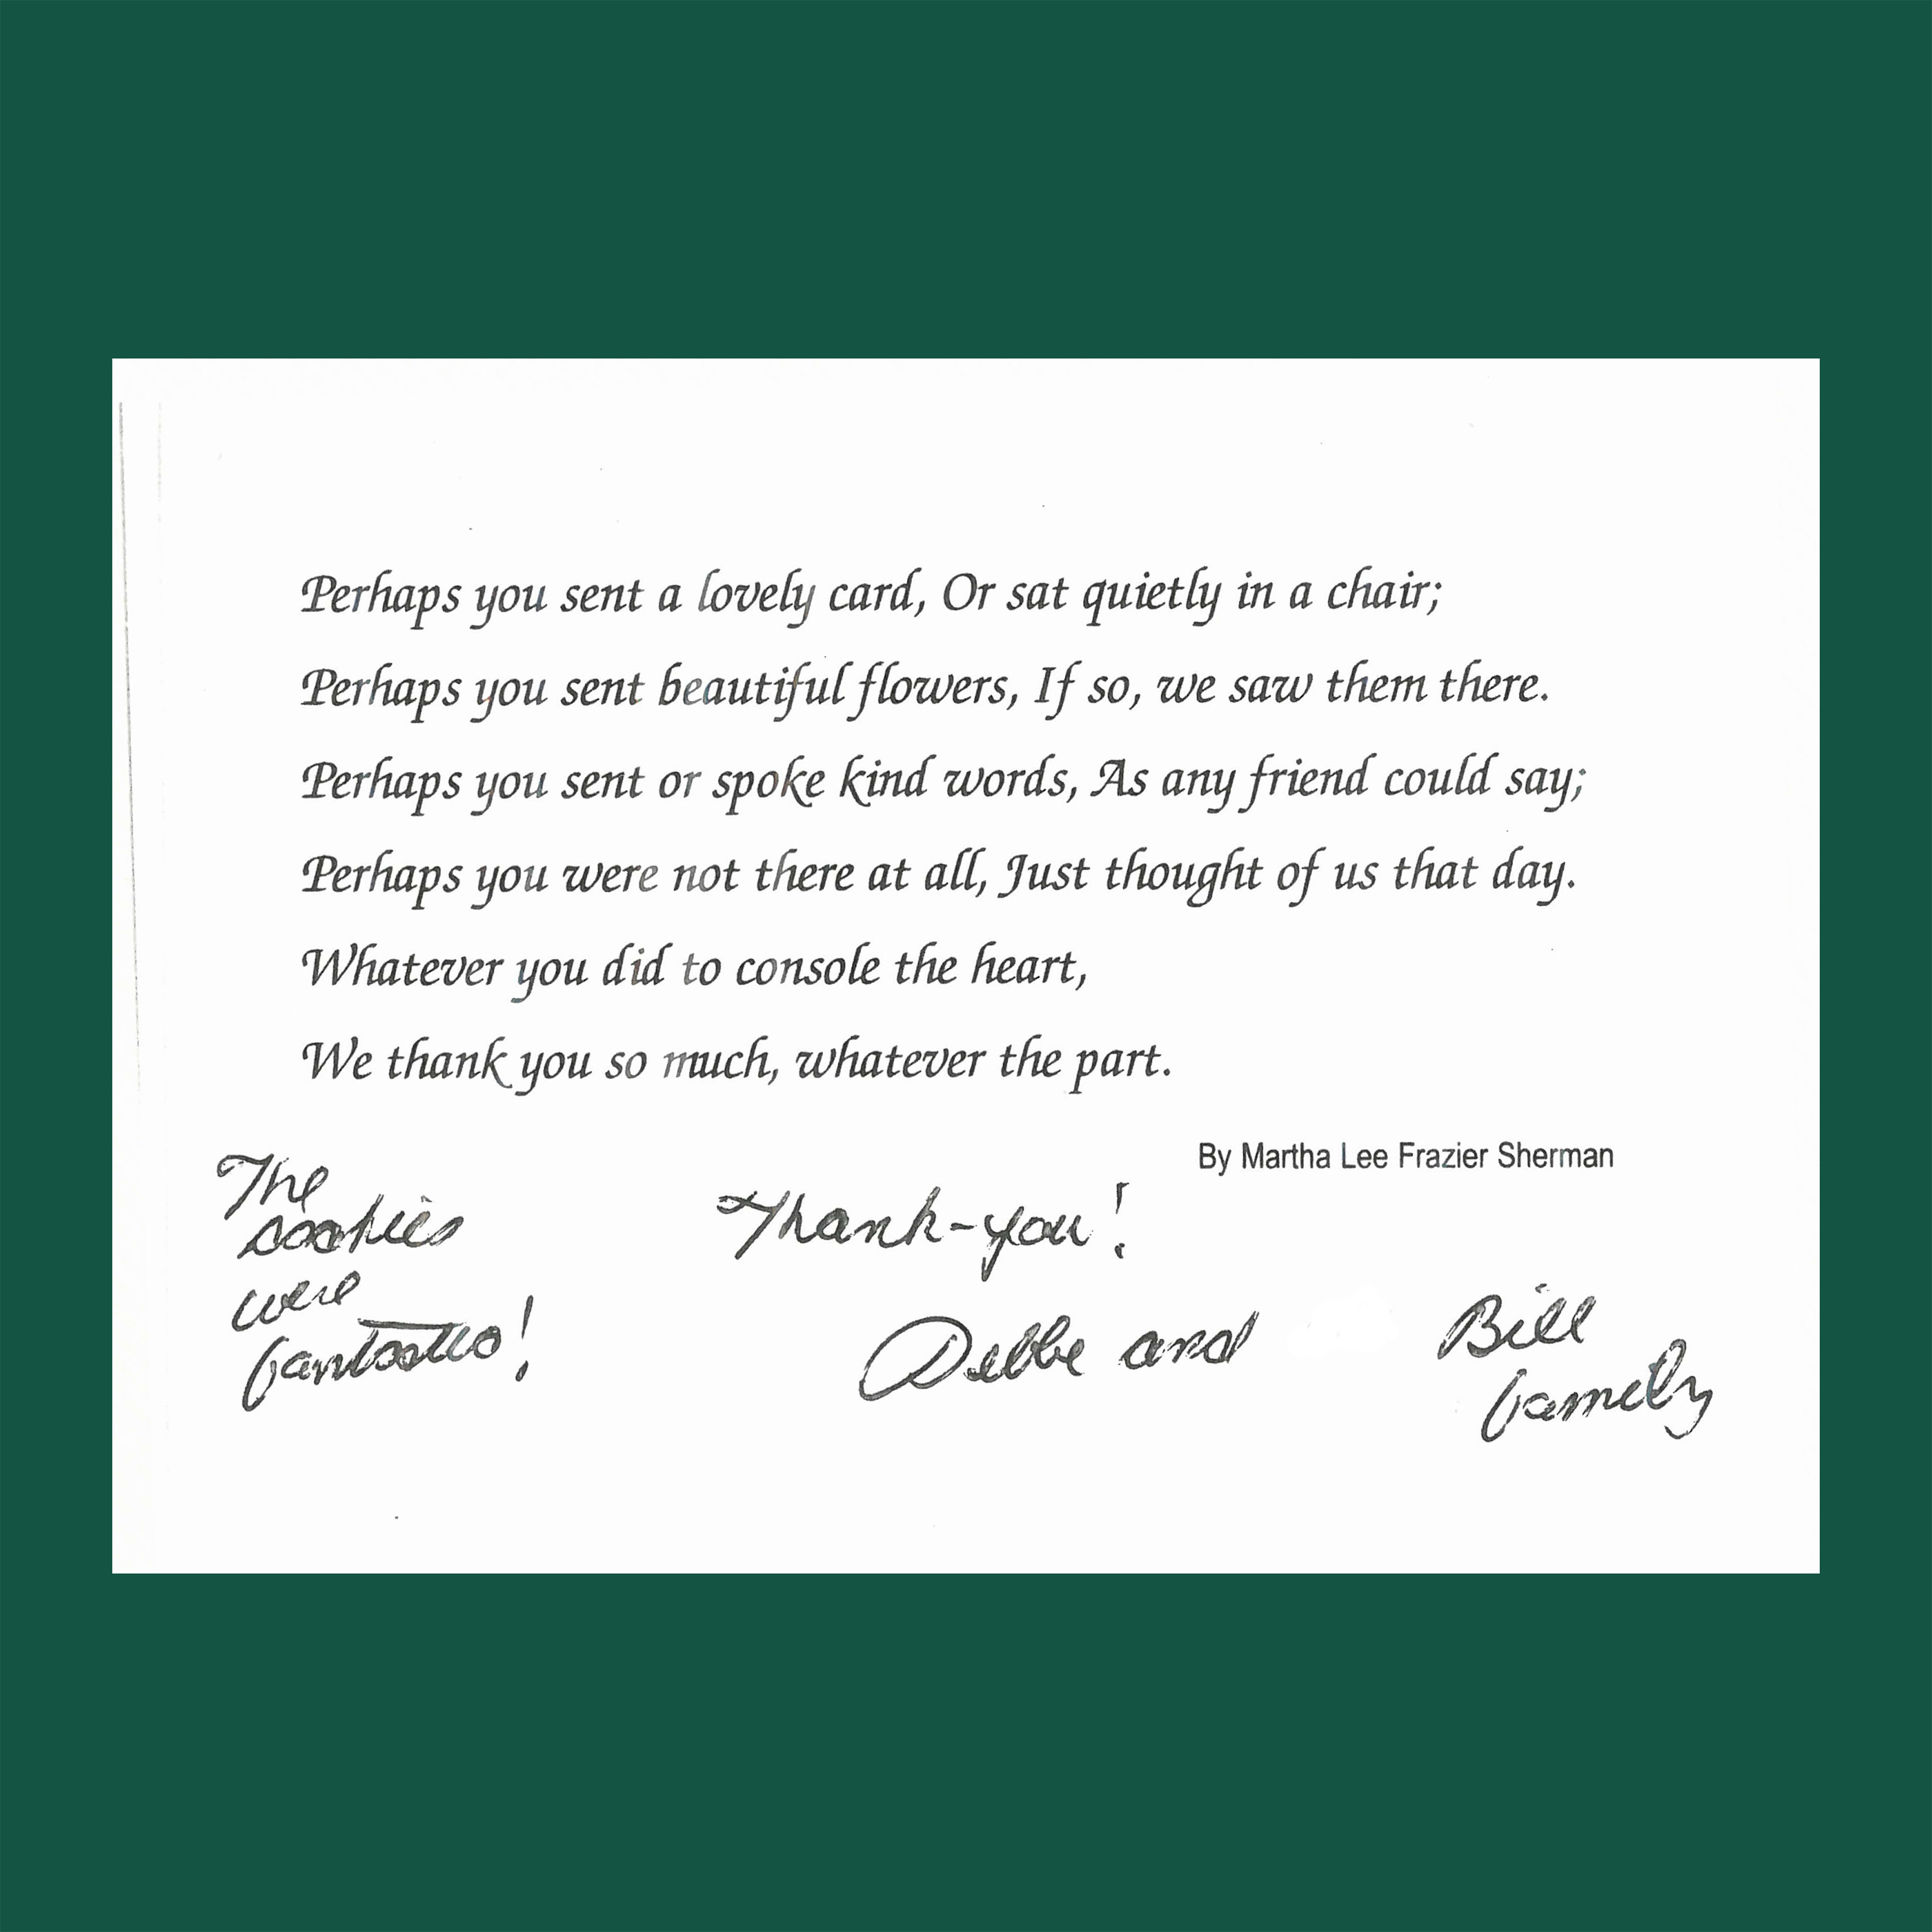 Perhaps you sent a lovely card, Or sat quietly in a chair;
Perhaps you sent beautiful flowers, If so, we saw them there.
Perhaps you sent or spoke kind words, As any friend could say;
Perhaps you were not there at all, Just thought of us that day.
Whatever you did to console the heart,
We thank you so much, whatever the part.
By Martha Lee Frazier Sherman
The
cookies
were
fantastic!
Thank-you!
Debbe and Bill
family